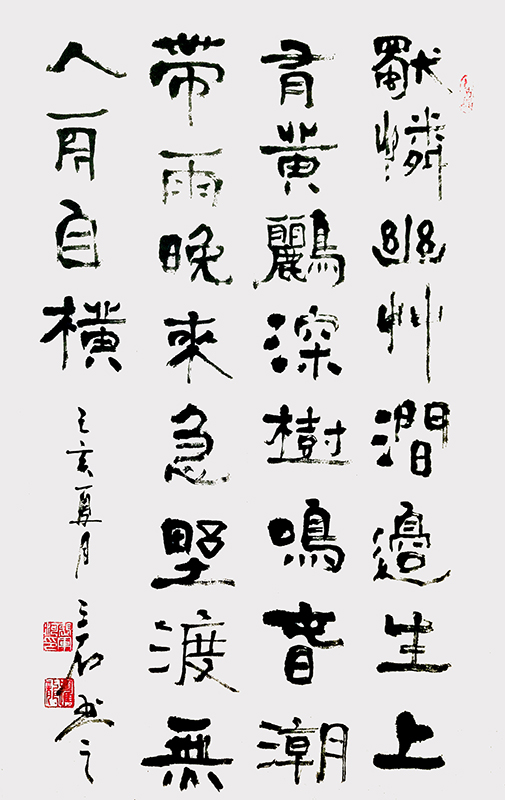 獨憐幽艸澗邊生上
有黃鸝深樹鳴春潮
帶雨晚來急野渡無
人舟自橫
己亥夏月 三石书之